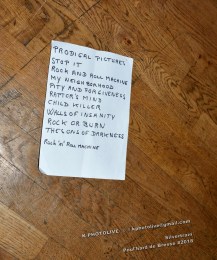 PRODIGAL PICTURES
STOP IT
ROCK AND ROLL MACHINE
MY NEIGHBORHOOD
PITY AND FORGIVENESS
RATTER'S MIND
CHILD KILLER
WALLS OF INSANITY
ROCK OR BURN
THE SONS OF DARKNESS
Rock 'n' Roll MACHINE
K-PHOTOLIVE
kphotolive@gmail.com
Silverstant
©2018